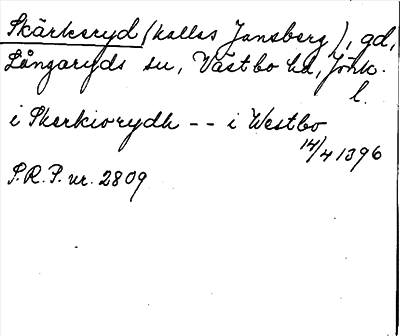 Skärkeryd (kallas Jansberg), gd,
Långaryds sn, Västbo hd, Jönk.
l.
i Skerkiorydh -- i Westbo
14/4 1396
S.R.P. nr. 2809